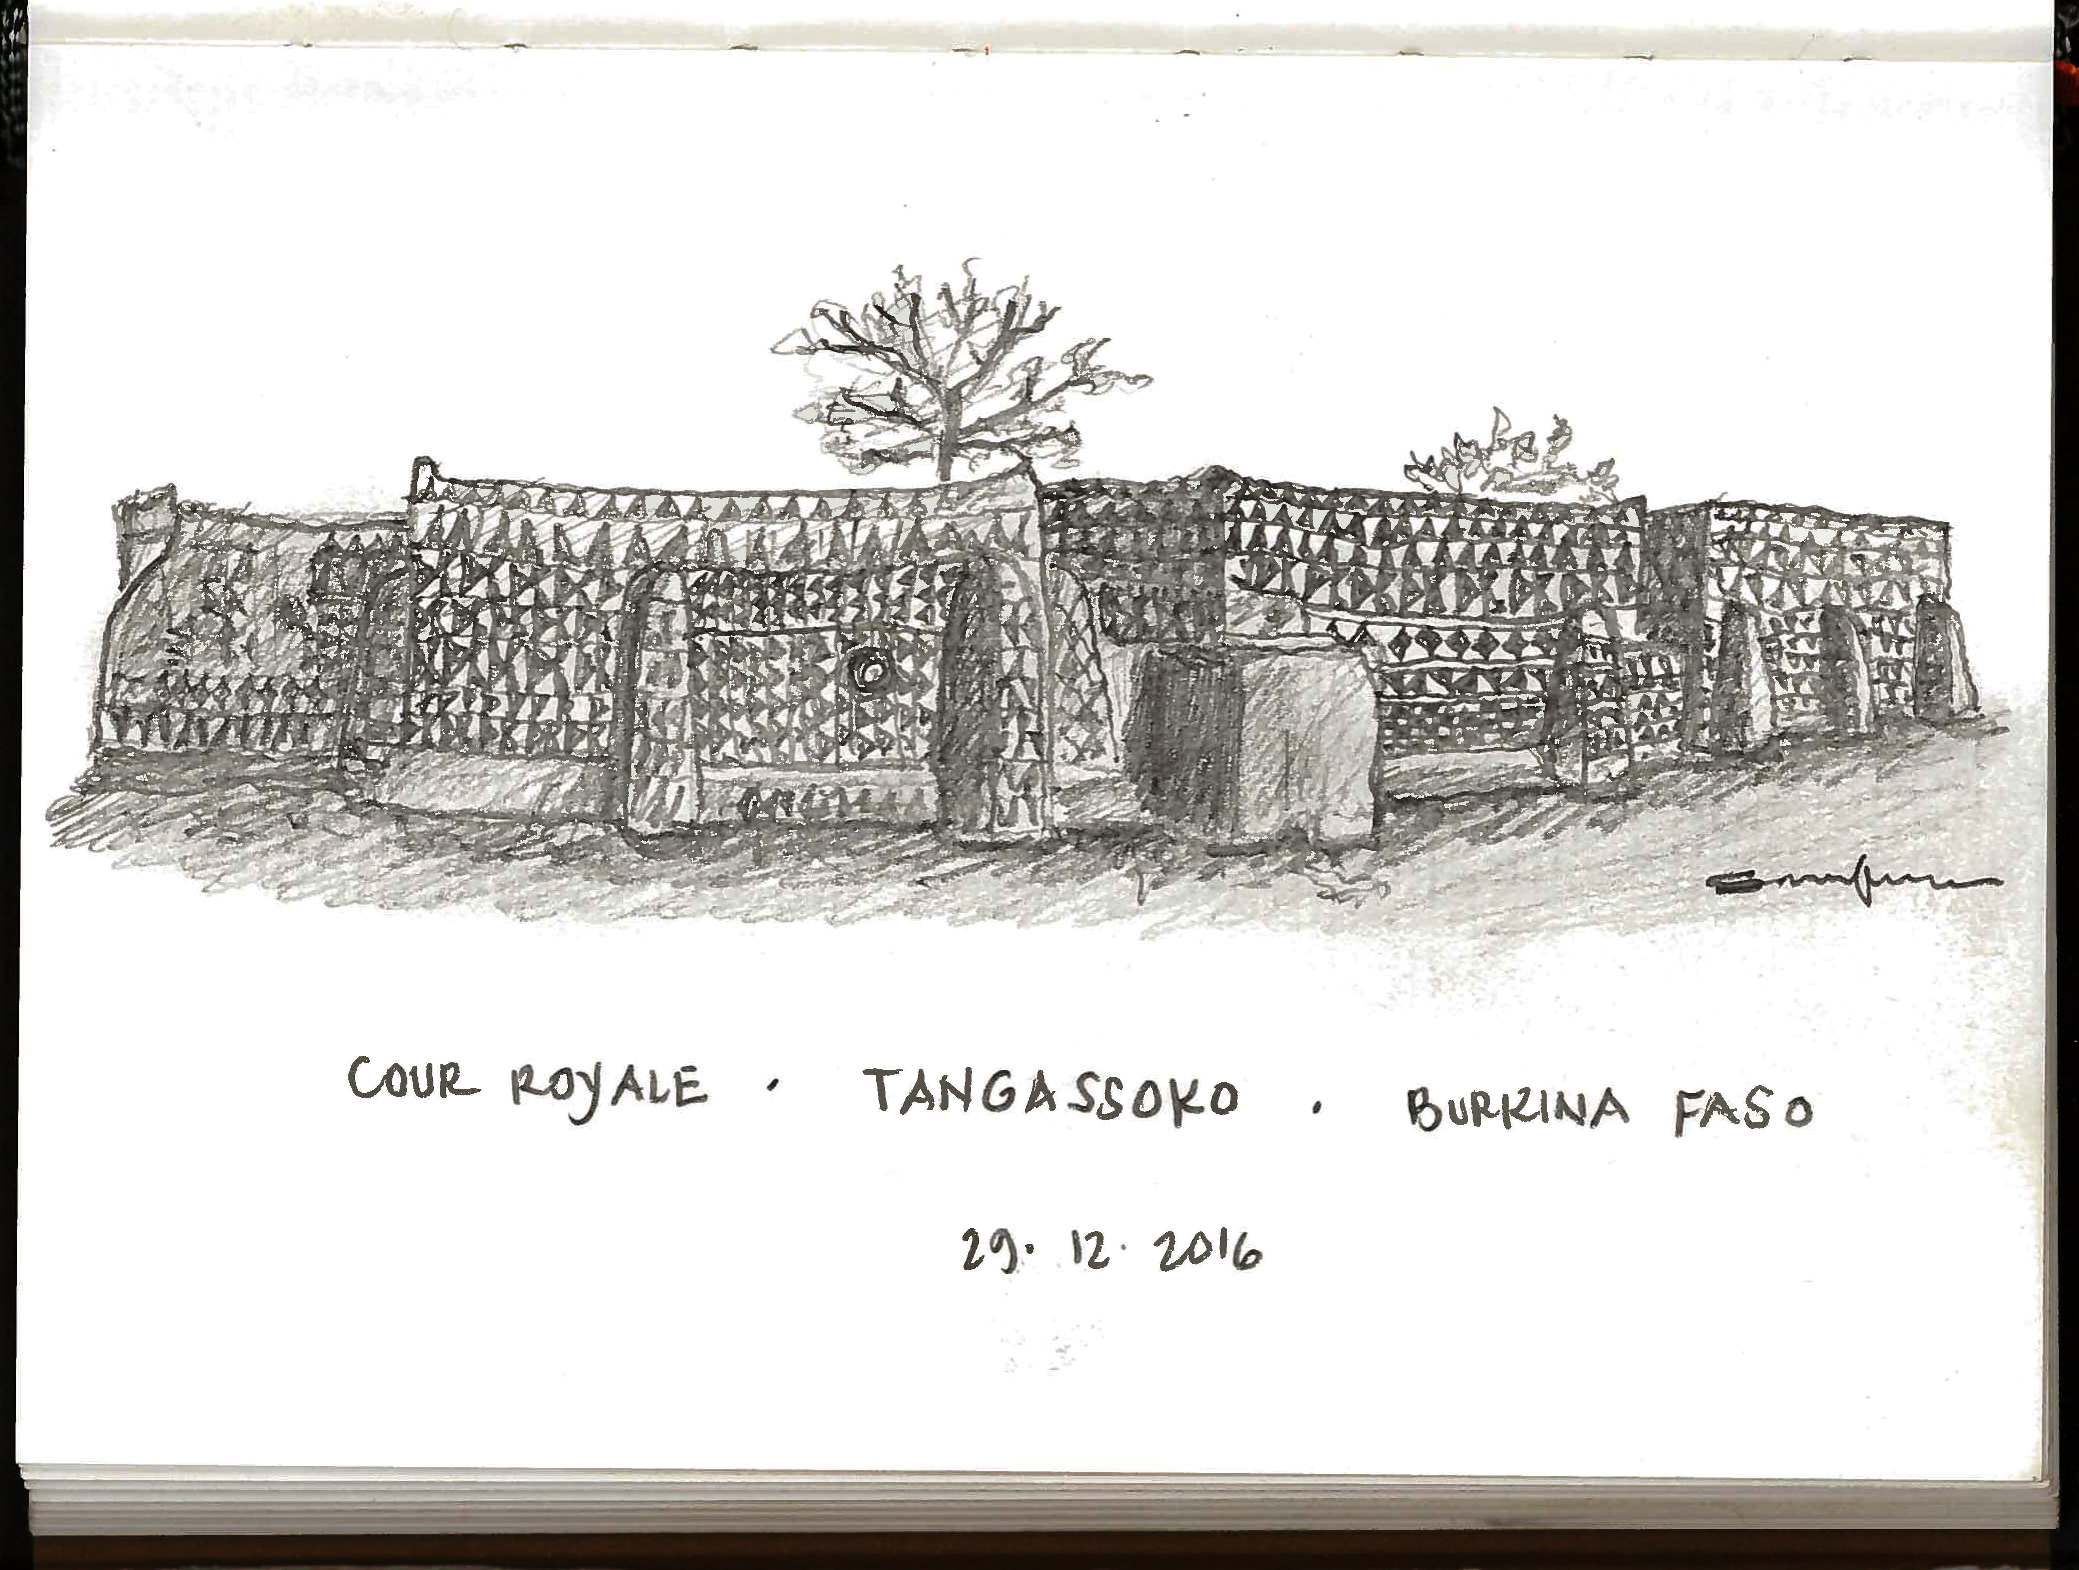 COUR ROYALE . TANGASSOKO . BURKINA FASO
29. 12. 2016